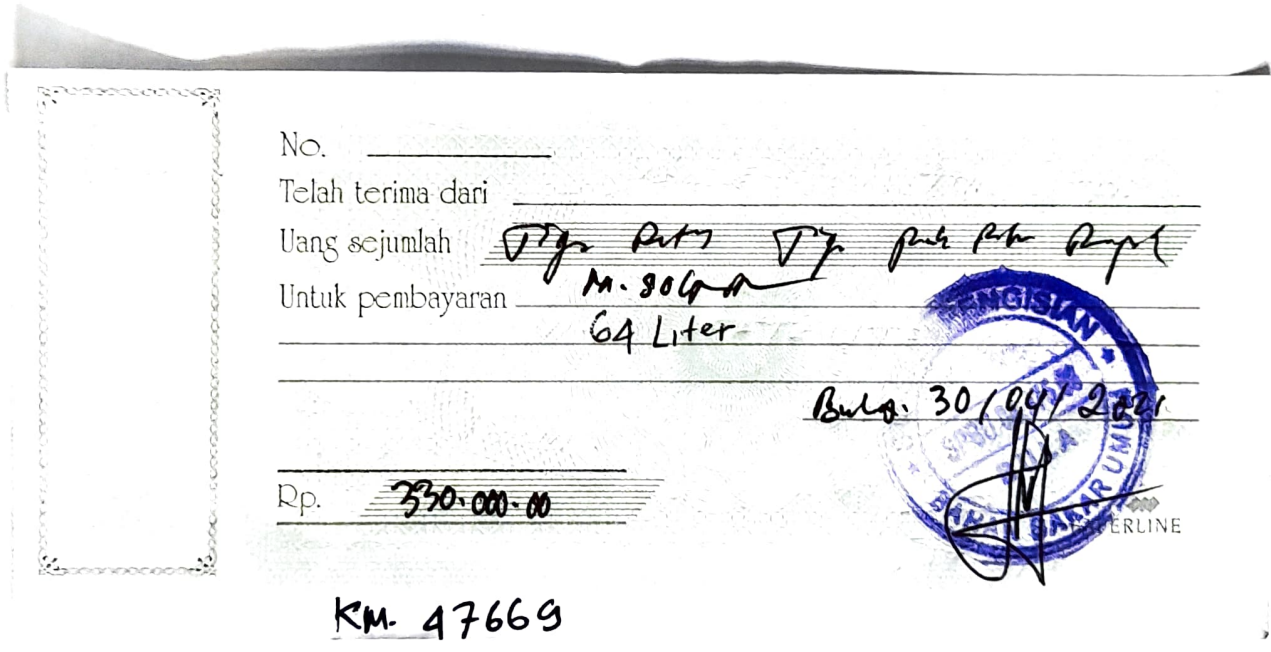 No.
Telah terima dari
Uang sejumlah Tiga Ratus Tiga puluh Ribu Rupiah
Untuk pembayaran M. Solar
64 Liter
30/04/2021
PENGISIAN
BAHAN BAKAR UMUM
Rp. 330.000.00
PAPERLINE
KM. 47669